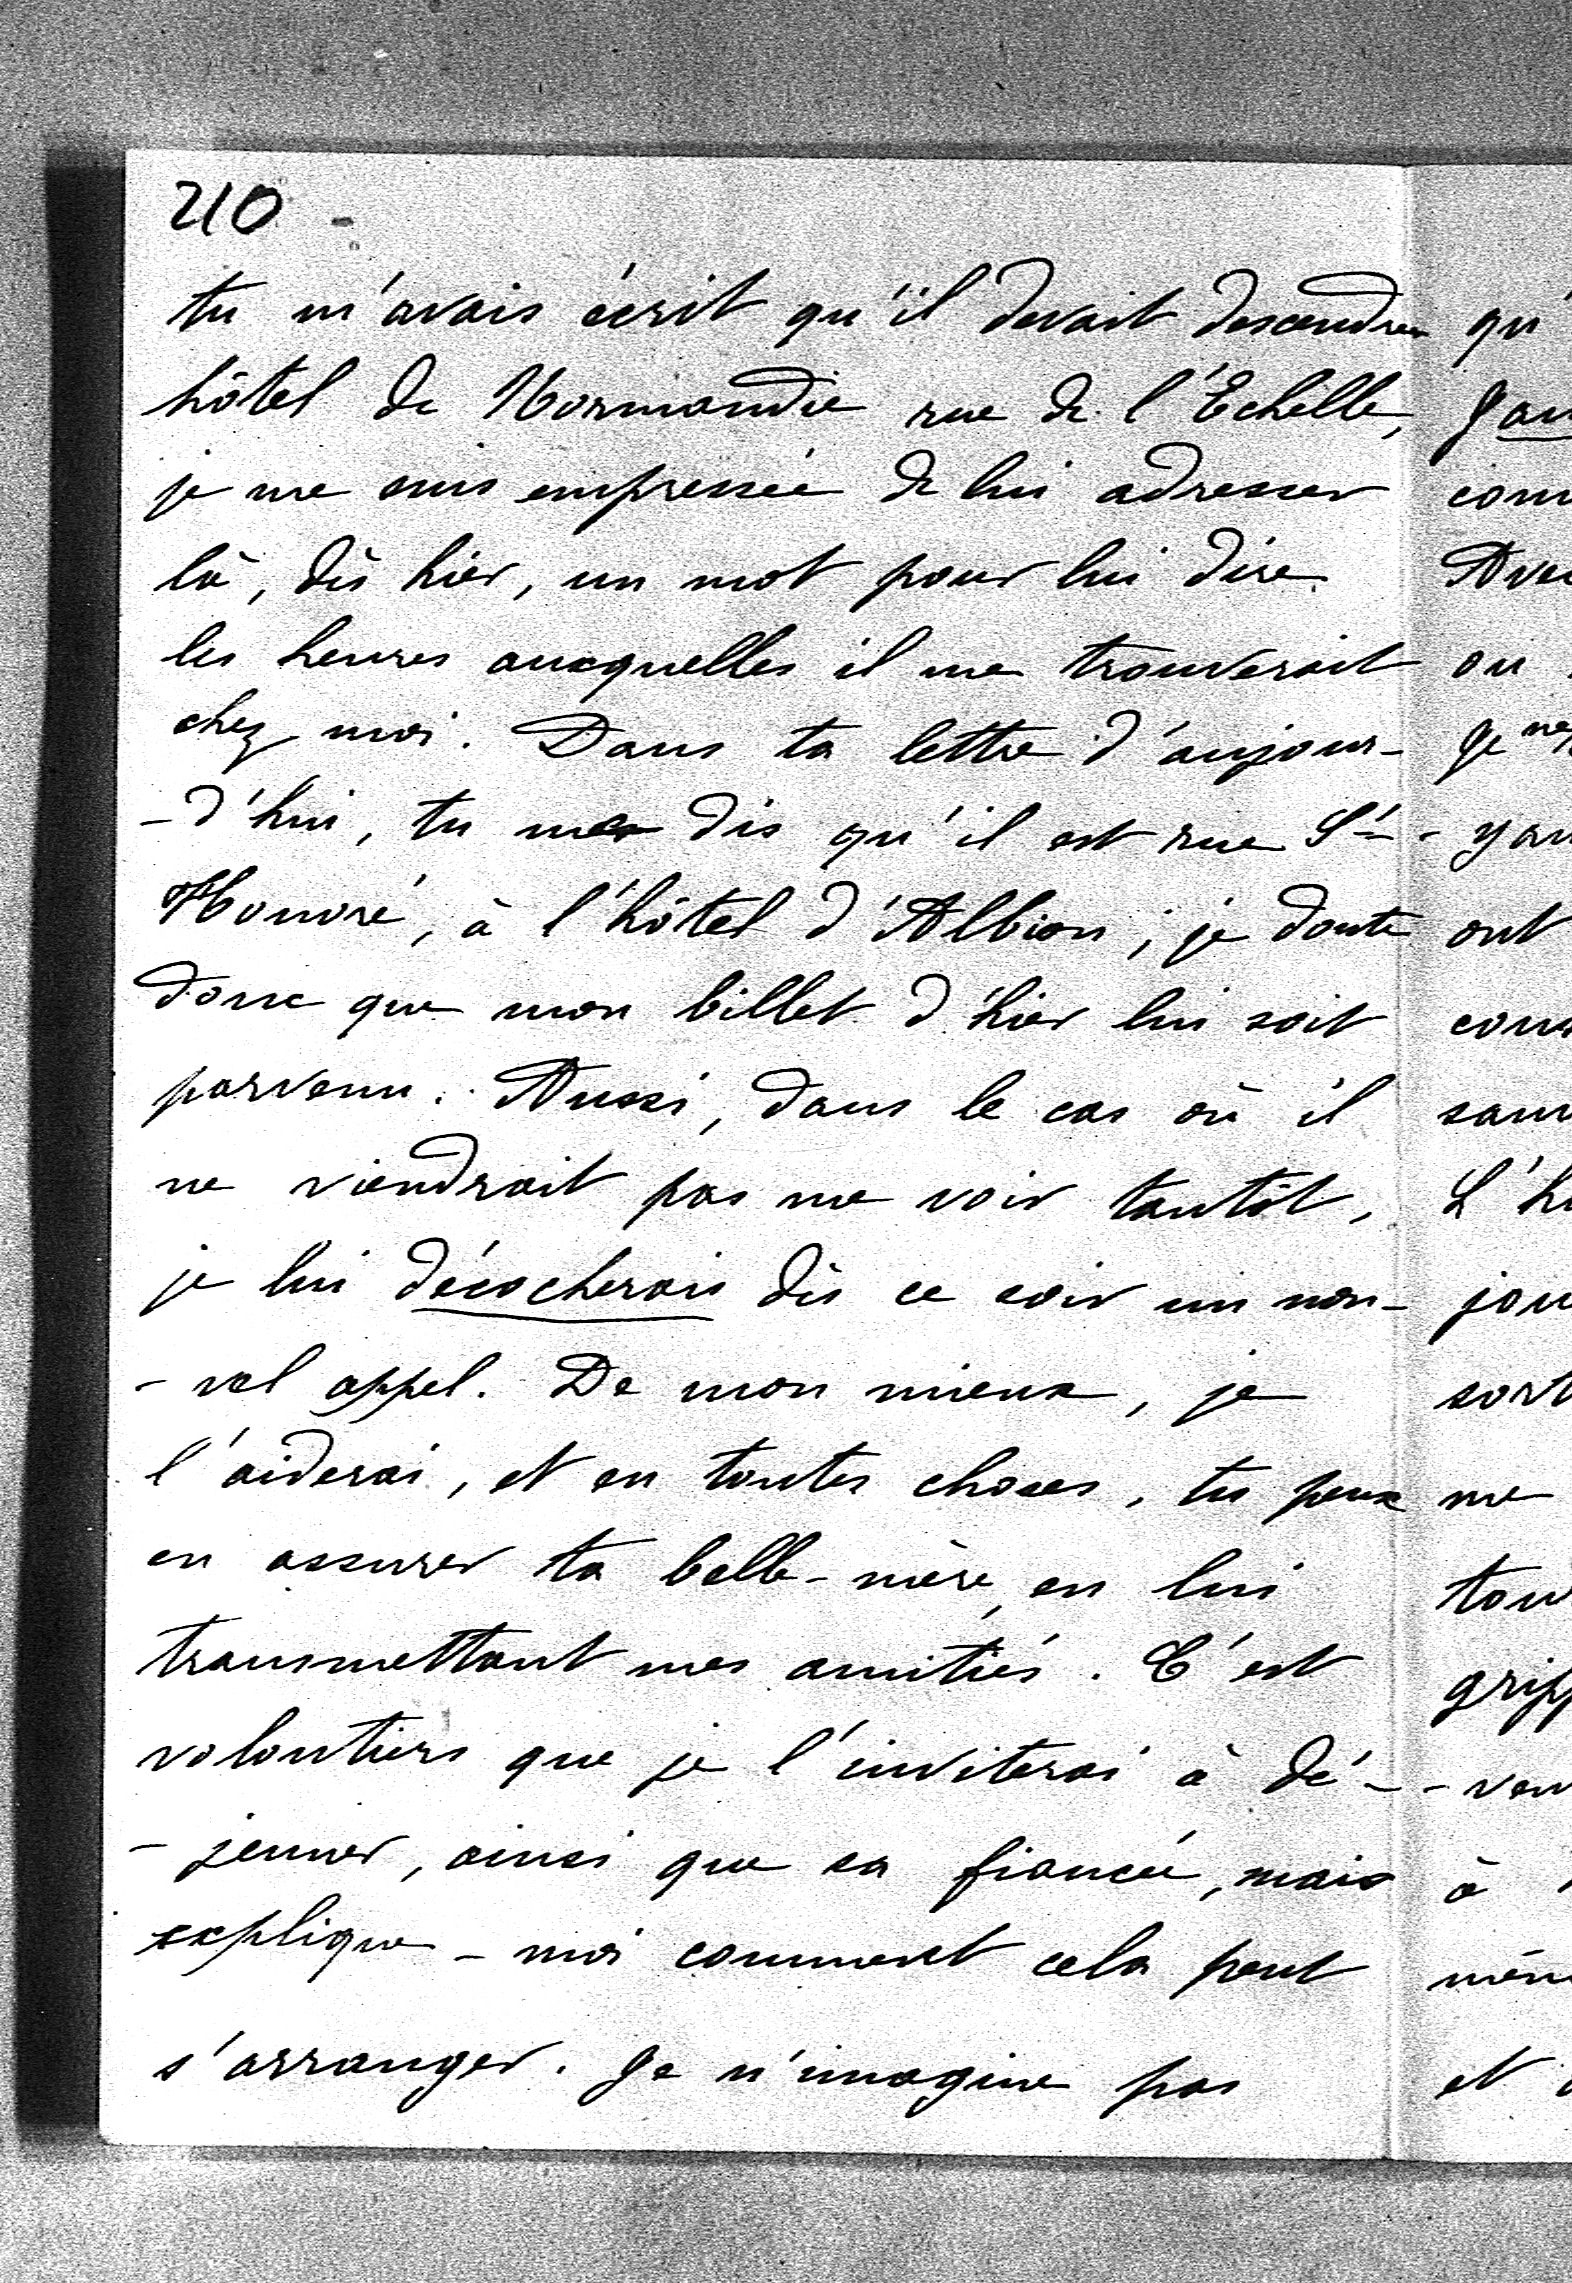 210
tu m'avais écrit qu'il devait descendre
hôtel de Normandie rue de l'Echelle,
je me suis empressée de lui adresser
là, dès hier, un mot pour lui dire
les heures auxquelles il me trouverait
chez moi. Dans ta lettre d'aujour-
-d'hui, tu me dis qu'il est rue St-
Honoré, à l'hôtel d'Albion ; je doute
donc que mon billet d'hier lui soit
parvenu. Aussi, dans le cas où il
ne viendrait pas me voir tantôt,
je lui décocherais dès ce soir un nou-
-vel appel. De mon mieux, je
l'aiderai, et en toutes choses, tu peux
en assurer ta belle-mère, en lui
transmettant mes amitiés. C'est
volontiers que je l'inviterai à dé-
-jeuner, ainsi que sa fiancée, mais
explique-moi comment cela peut
s'arranger. Je n'imagine pas
qu'
com
ou
Je ne
ont
sam
L'h
jou
sort
me
tou
gripp
-ven
à
mêm
et